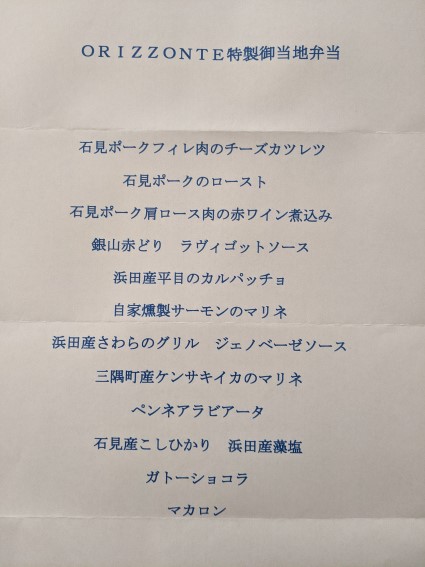 ＯＲＩＺＺＯＮＴＥ特製御当地弁当
石見ポークフィレ肉のチーズカツレツ
石見ポークのロースト
石見ポーク肩ロース肉の赤ワイン煮込み
銀山赤どり　ラヴィゴットソース
浜田産平目のカルパッチョ
自家燻製サーモンのマリネ
浜田産さわらのグリル　ジェノベーゼソース
三隅町産ケンサキイカのマリネ
ペンネアラビアータ
石見産こしひかり　浜田産藻塩
ガトーショコラ
マカロン